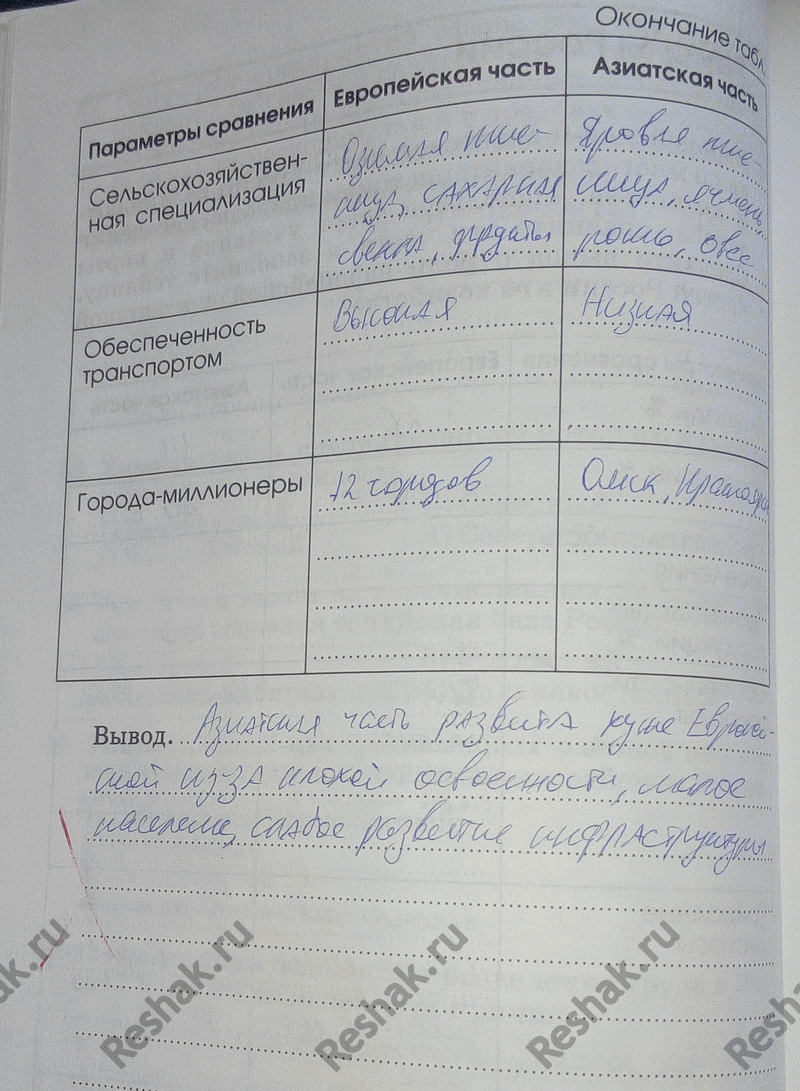 Окончание табл.
Параметры сравнения
Европейская часть
Азиатская часть
Сельскохозяйствен-
ная специализация
Озимая пше-
ница, сахарная
свекла,
Яровая пше-
ница, ячмень,
рожь, овёс
Обеспеченность
транспортом
Высокая
Низкая
Города-миллионеры
12 городов
Омск, Красноярск
Вывод. Азиатская часть развита хуже Европей-
ской из за плохой освоенности, малое
население, слабое развитие инфраструктуры
ak.ru
Reshak.ru
Reshak.ru
Reshak.ru
Resh